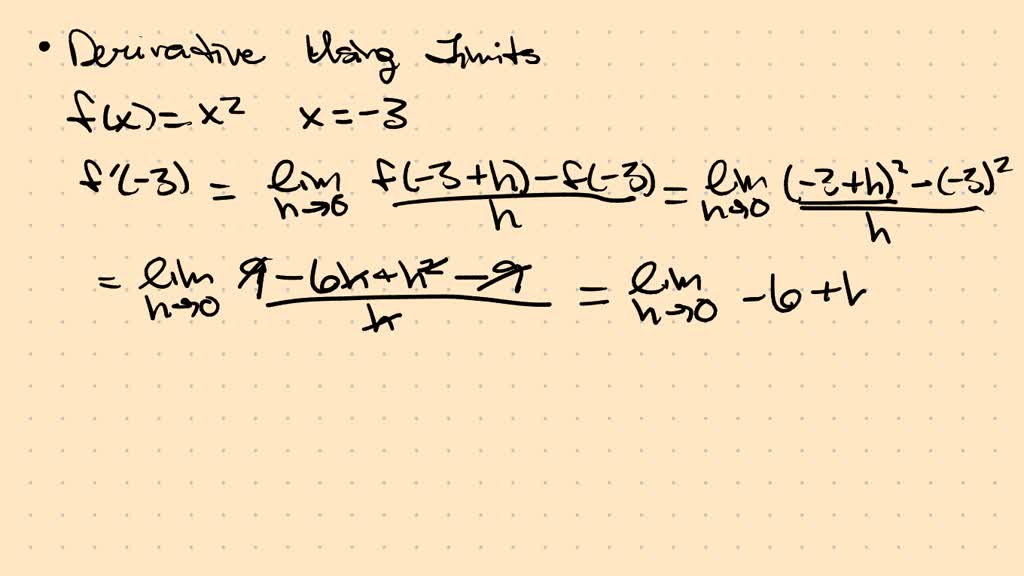 • Derivative Using Limits
f(x) = x² x = -3
f'(-3) = lim h→0 f(-3+h)-f(-3) / h = lim h→0 (-3+h)²-(-3)² / h
= lim h→0 9-6h+h²-9 / h = lim h→0 -6+h